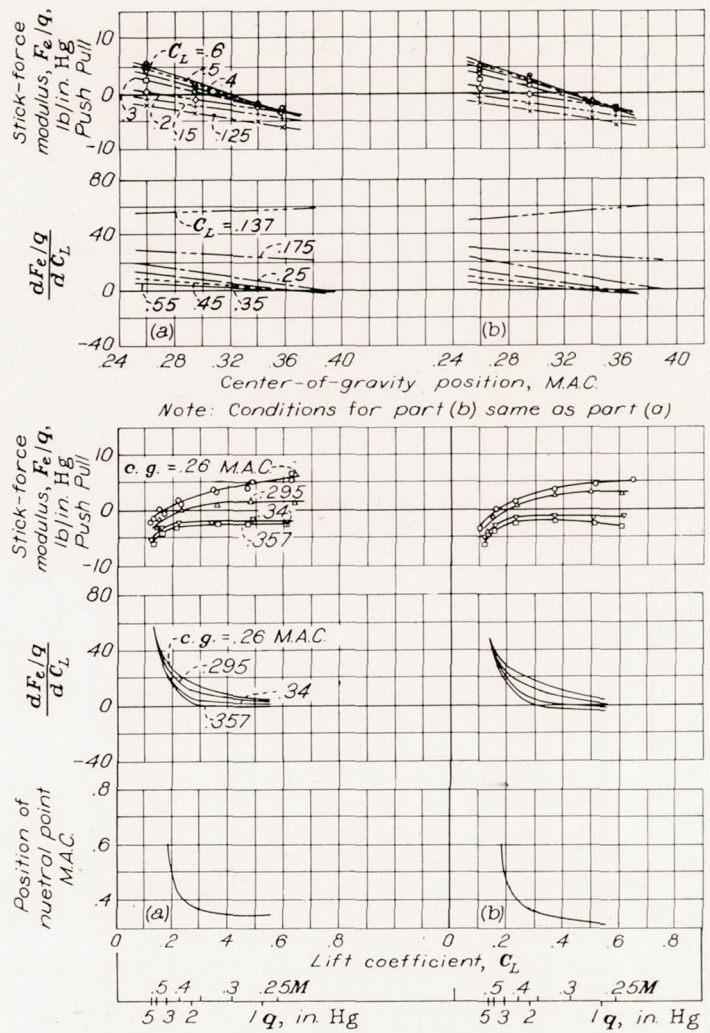 Stick-force
modulus, Fe/q,
lb/in. Hg
Push Pull
10
0
-10
C_L = .6
.5
.4
.3
.2
.15
.125
80
40
0
-40
dFe/q
d C_L
C_L = .137
.175
.25
.55 .45 .35
(a)
(b)
.24 .28 .32 .36 .40 .24 .28 .32 .36 .40
Center-of-gravity position, M.A.C.
Note: Conditions for part (b) same as part (a)
Stick-force
modulus, Fe/q,
lb/in. Hg
Push Pull
10
0
-10
c. g. = .26 M.A.C.
.295
.34
.357
80
40
0
-40
dFe/q
d C_L
c. g. = .26 M.A.C.
.295
.34
.357
Position of
nuetral point
M.A.C.
.8
.6
.4
(a)
(b)
0 .2 .4 .6 .8 0 .2 .4 .6 .8
Lift coefficient, C_L
.5 .4 .3 .25 M .5 .4 .3 .25 M
5 3 2 1 q, in. Hg 5 3 2 1 q, in. Hg